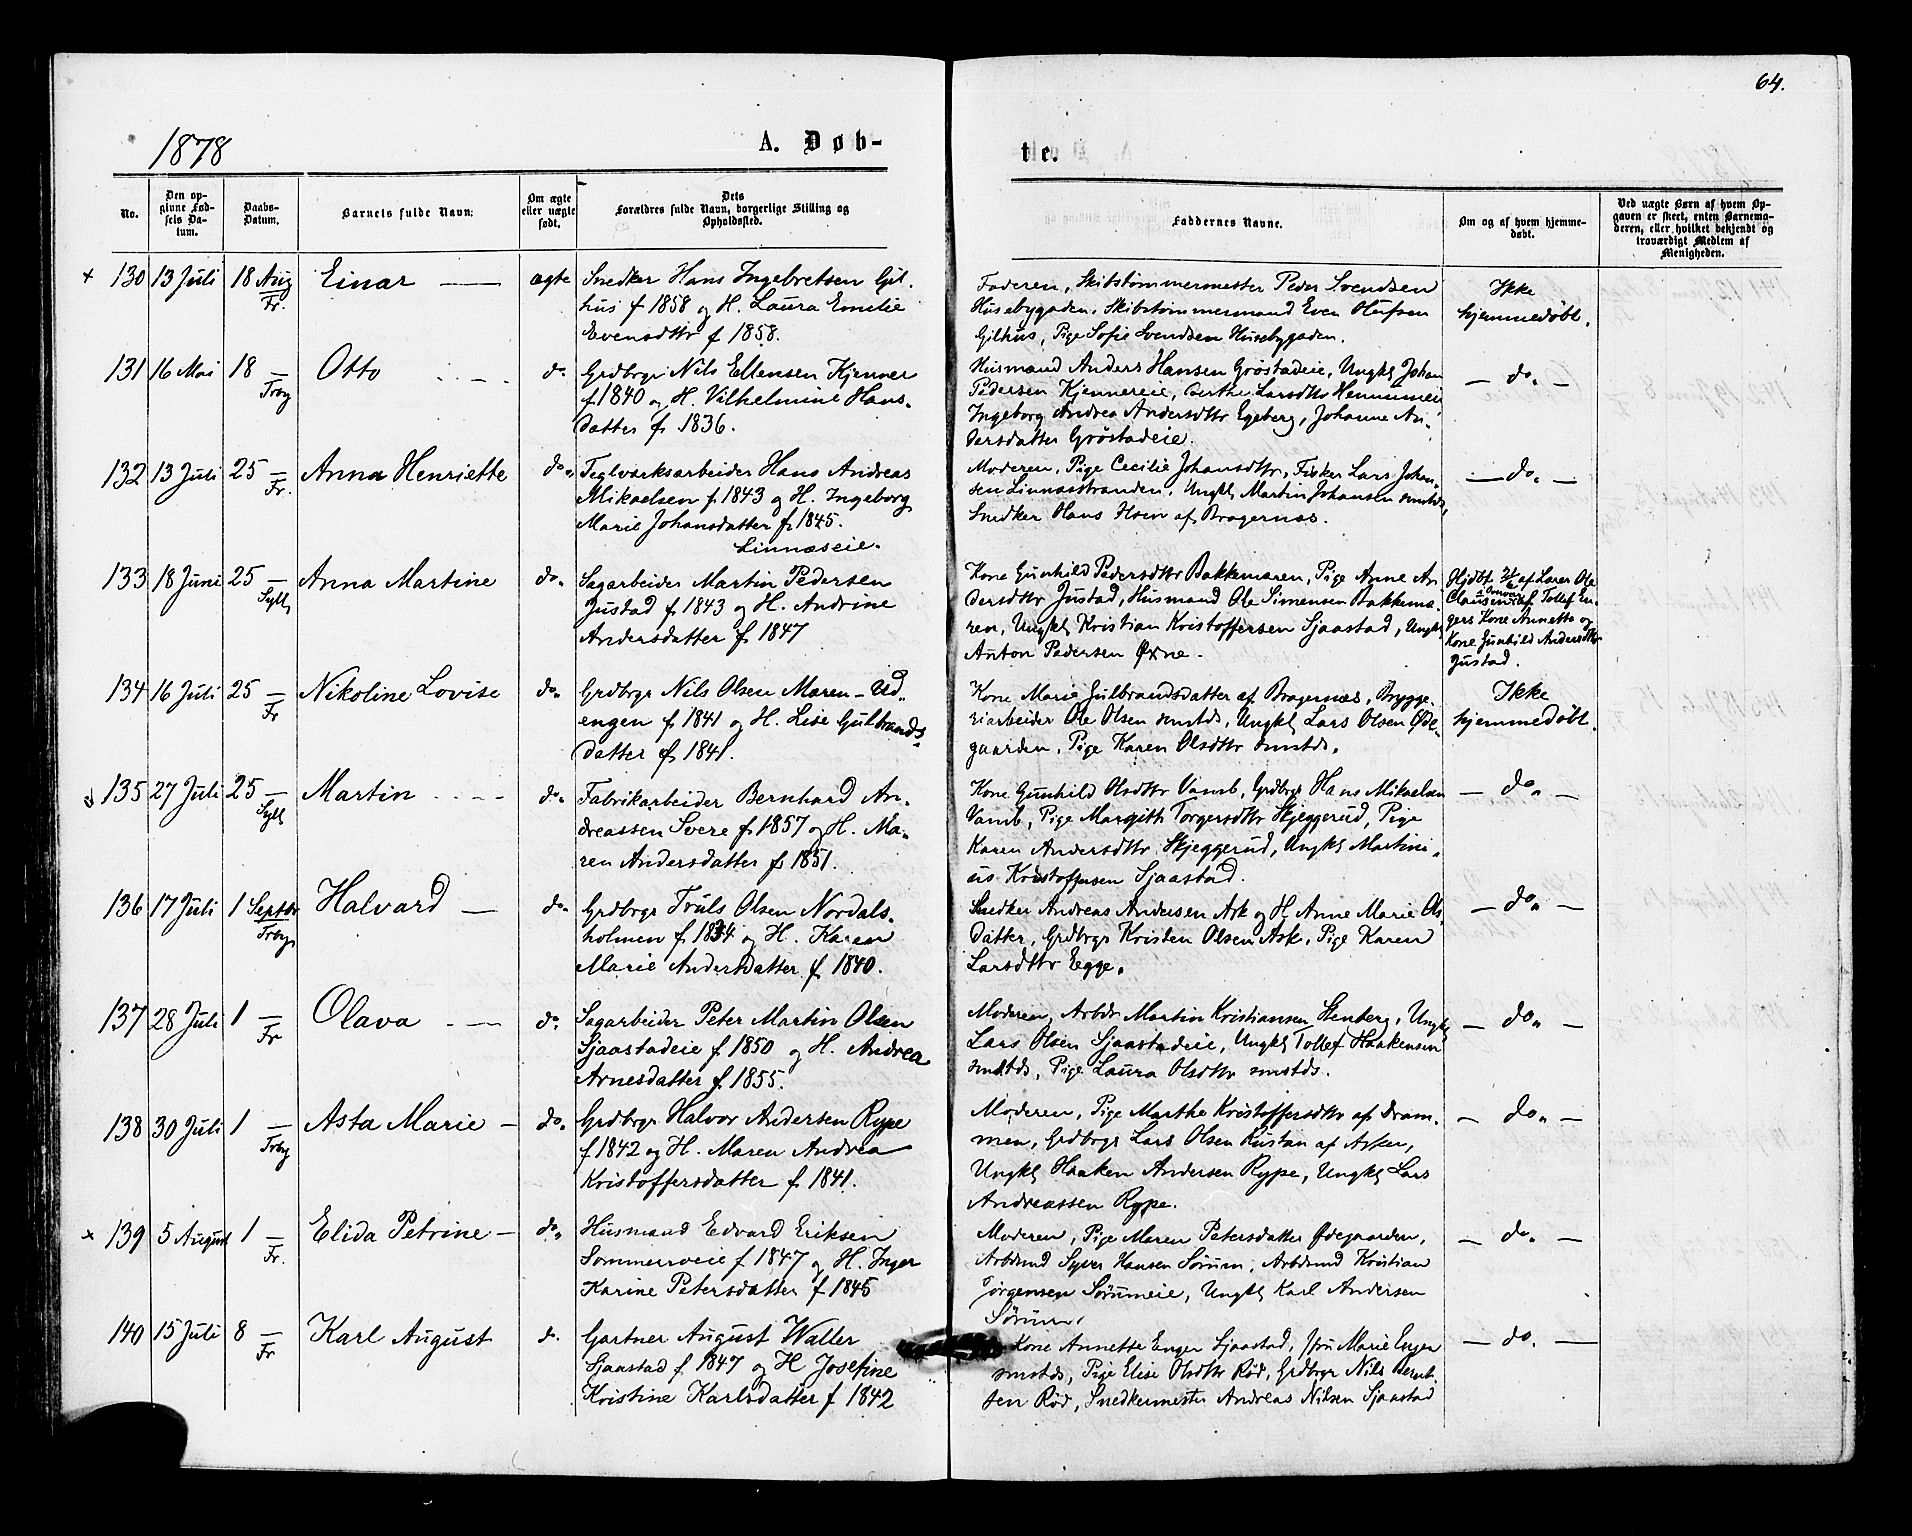 64.
1878
A. Døb-
te.
No.
Den op-
givne Fød-
sels Da-
tum.
Daabs-
Datum.
Barnets fulde Navn.
Om ægte
eller uægte
født.
Dets
Forældres fulde Navn, borgerlige Stilling og
Opholdssted.
Faddernes Navne.
Om og af hvem hjemme-
døbt.
Ved uægte Børn af hvem Op-
gaven er skeet, enten Barnemo-
deren, eller hvilket bekjendt og
troværdigt Medlem af
Menigheden.
+ 130 13 Juli 18 Aug Fr. Einar — ægte
Snedker Hans Ingebretsen Gil-
hus f 1858 og H. Laura Emilie
Evensdttr f 1858.
Faderen, Skibstømmermester Peder Svendsen
Husebygaden, Skibstømmermand Even
Gilhus, Pige Sofie Svendsen Husebygaden.
Ikke
hjemmedøbt.
131 16 Mai 18 — Frby Otto do.
Grdbrgr Nils Ellensen Kjenner
f 1840 og H. Vilhelmine Hans-
datter f. 1836.
Husmand Anders Hansen Gröstadeie, Ungkl Johan
Pedersen Kjennereie, Berthe Larsdttr
Ingeborg Andrea Andersdttr Egeberg, Johanne An-
dersdatter Gröstadeie.
— do. —
132 13 Juli 25 — Fr. Anna Henriette do.
Teglværksarbeider Hans Andreas
Mikaelsen f 1843 og H. Ingeborg
Marie Johansdatter f 1845.
Linnæseie.
Moderen, Pige Cecilie Johansdttr, Fisker Lars Johan-
sen Linnæsstranden, Ungkl Martin Johansen smstds,
Snedker Hans Ilsen af Bragernæs.
— do. —
133 18 Juni 25 — Syll Anna Martine do.
Sagarbeider Martin Pedersen
Justad f 1843 og H. Andrine
Andersdatter f 1847
Kone Gunhild Pedersdttr Bakkemaren, Pige Anne An-
dersdttr Justad, Husmand Ole Simensen Bakkema-
ren, Ungkl Kristian Kristoffersen Sjaastad, Ungkl
Anton Pedersen Øxne.
Hjdbt af Lærer Ole
Clausen af Tollef En-
gers Kone Annette og
Kone Gunhild Andersdttr
Justad.
134 16 Juli 25 — Fr Nikoline Lovise do.
Grdbrgr Nils Olsen Maren-Ud-
engen f 1841 og H. Lise Gulbrands-
datter f 1841.
Kone Marie Gulbrandsdatter af Bragernæs, Brygge-
riarbeider Ole Olsen smstds, Ungkl Lars Olsen Øde-
gaarden, Pige Karen Olsdttr smstds.
Ikke
hjemmedøbt.
135 27 Juli 25 — Syll Martin do.
Fabrikarbeider Bernhard An-
dreassen Svere f 1857 og H. Ma-
ren Andersdatter f 1851.
Kone Gunhild Olsdttr Vamb, Grdbrgr Hans Mikaelsen
Vamb, Pige Margith Torgersdttr Skjeggerud, Pige
Karen Andersdttr Skjeggerud, Ungkl Martini-
us Kristoffersen Sjaastad.
— do. —
136 17 Juli 1 Septbr Frby Halvard — do.
Grdbrgr Truls Olsen Nordals-
holmen f 1834 og H. Karen
Marie Andersdatter f 1840.
Snedker Andreas Andersen Ask og H. Anne Marie Ols-
datter, Grdbrgr Kristen Olsen Ask, Pige Karen
Larsdttr Egge.
— do. —
137 28 Juli 1 — Fr Olava do.
Sagarbeider Peter Martin Olsen
Sjaastadeie f 1850 og H. Andrea
Arnesdatter f. 1855.
Moderen, Arbdr Martin Kristiansen Stenberg, Ungkl
Lars Olsen Sjaastadeie, Ungkl Tollef Haakensen
smstds, Pige Laura Olsdttr smstds.
— do. —
138 30 Juli 1 — Frby Asta Marie — do.
Grdbrgr Halvor Andersen Rype
f 1842 og H. Maren Andrea
Kristoffersdatter f 1841.
Moderen, Pige Marthe Kristoffersdttr af Dram-
men, Grdbrgr Lars Olsen Kustan af Asker,
Ungkl Haaken Andersen Rype, Ungkl Lars
Andreassen Rype.
— do. —
+ 139 5 August 1 — Fr. Elida Petrine — do.
Husmand Edvard Eriksen
Sommerroeie f 1847 og H. Inger
Karine Petersdatter f 1845
Moderen, Pige Maren Petersdatter Ødegaarden,
Arbdmd Syver Hansen Sørum, Arbdmd Kristian
Jørgensen Sørumeie, Ungkl Karl Andersen
Sørum.
— do. —
140 15 Juli 8 — Fr Karl August do.
Gartner August Waller
Sjaastad f 1847 og H Josefine
Kristine Karlsdatter f 1842
Kone Annette Enger Sjaastad, Fru Marie Enger
smstds, Pige Elise Olsdttr Rød, Grdbrgr Nils Bernt-
sen Rød, Snedkermester Andreas Nilsen Sjaastad
— do. —